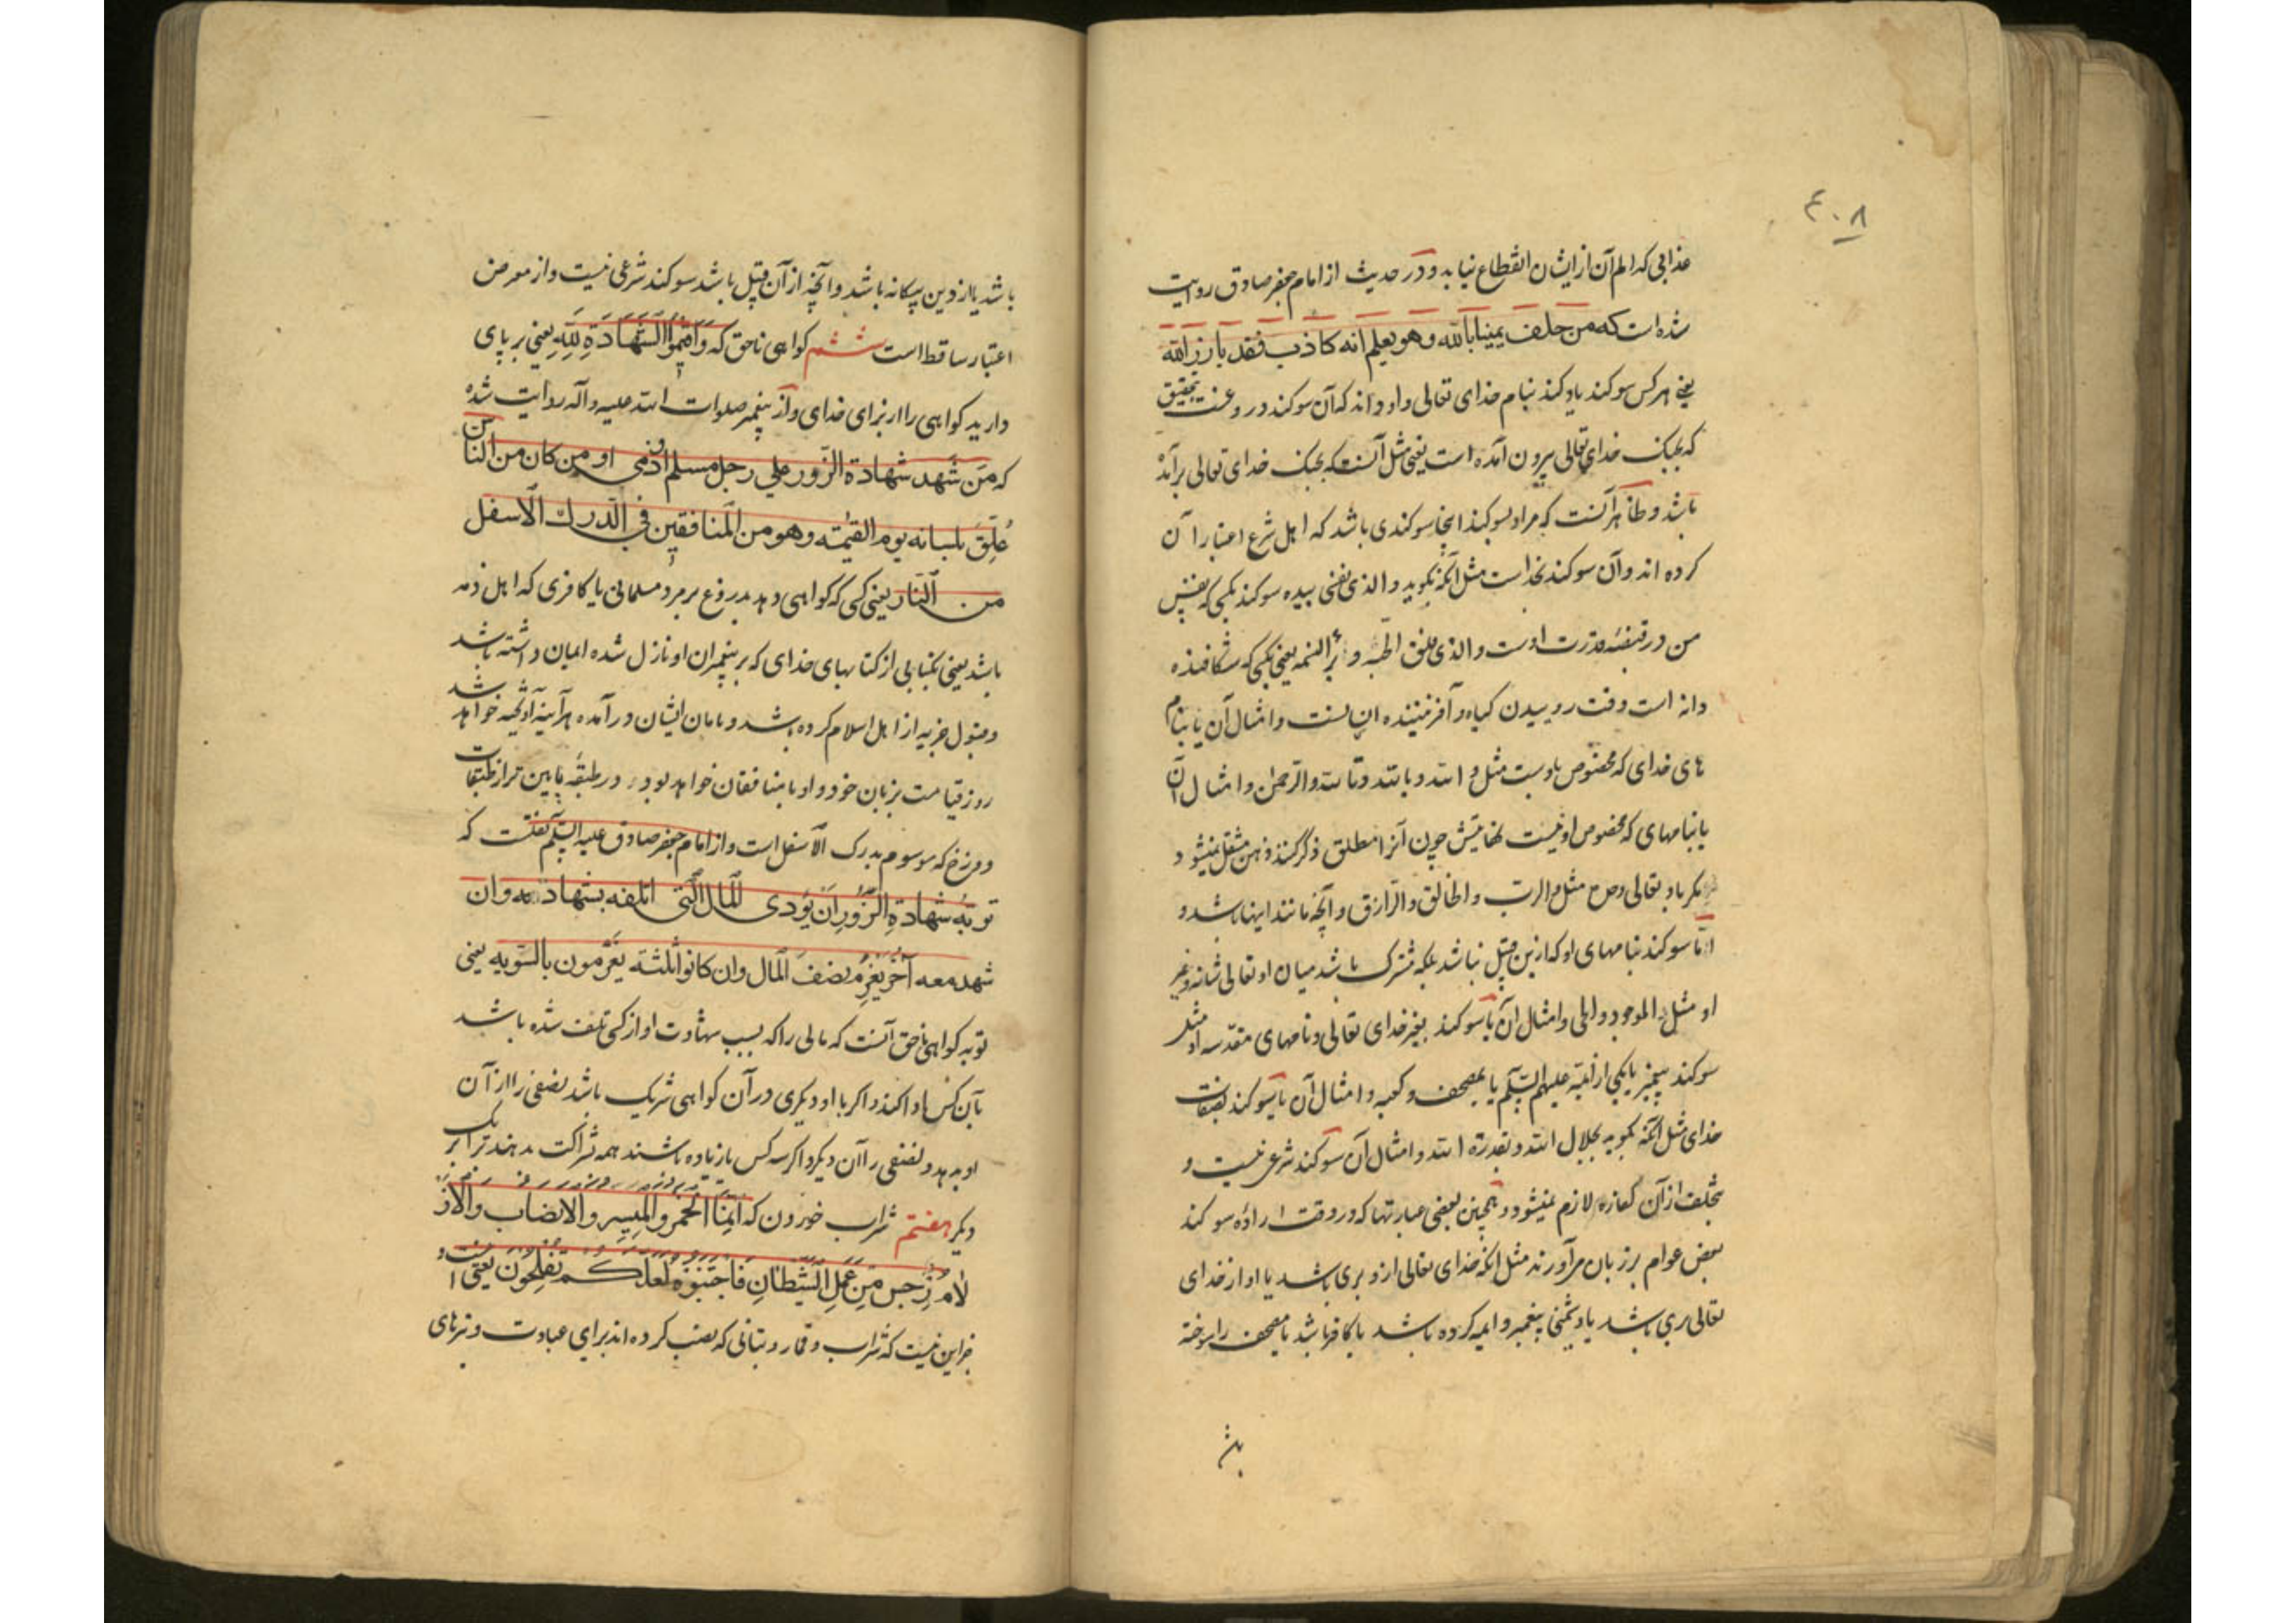 ۴۰۸
عذابی که الم آن از ایشان انقطاع نیابد و در حدیث از امام جعفر صادق روایت
شده است که من حلف یمینا بالله وهو یعلم انه کاذب فقد بارز الله
یعنی هر کس سوکند یاد کند بنام خدای تعالی و او داند که آن سوکند دروغست بتحقیق
که بجنک خدای تعالی بیرون آمده است یعنی مثل آنست که بجنک خدای تعالی برآمده
باشد و ظاهر آنست که مراد بسوکند اینجا سوکندی باشد که اهل شرع اعتبار آن
کرده اند و آن سوکند بخداست مثل آنکه بکوید والذی نفسی بیده سوکند بکسی که نفس
من در قبضه قدرت اوست والذی فلق الحبه و برأ النسمه یعنی بکسی که شکافنده
دانه است وقت روییدن کیاه و آفریننده انسانست و امثال آن یا بنام
های خدای که مخصوص باوست مثل والله وبالله وتالله والرحمن وامثال آن
یا بنامهای که مخصوص او نیست نهایتش چون آنرا مطلق ذکر کنند ذهن منتقل نمیشود
مکر باو تعالی مثل والرب والخالق والرازق و آنچه مانند اینها باشد و
اما سوکند بنامهای او که ازین قبیل نباشد بلکه مشترک باشد میان او تعالی شانه و غیر
او مثل الموجود والحی و امثال آن یا سوکند بغیر خدای تعالی و نامهای مقدسه او مثل
سوکند بپیغمبر یا یکی از ائمه علیهم السلم یا بمصحف و کعبه و امثال آن یا سوکند بصفات
خدای مثل آنکه بکوید بجلال الله و بقدرة الله و امثال آن سوکند شرعی نیست و
تخلف از آن کفاره لازم نمیشود و همچنین بعضی عبارتها که در وقت اراده سوکند
بعض عوام بر زبان می آورند مثل انکه خدای تعالی ازو بری باشد یا او از خدای
تعالی بری باشد یا دشمنی پیغمبر و ایمه کرده باشد یا کافر باشد یا مصحف را سوخته
باشد یا از دین بیکانه باشد و آنچه از آن قبیل باشد سوکند شرعی نیست و از معرض
اعتبار ساقط است ششم کواهی ناحق که وَاَقِیمُوا الشَّهَادَةَ لِلّٰهِ یعنی بر پای
دارید کواهی را از برای خدای و از پیغمبر صلوات الله علیه و آله روایت شده
که مَن شَهِدَ شهادة الزّور علی رجل مسلم او ذمی او من کان من الناس
عُلِّقَ بلسانه یوم القیمة وهو من المنافقین فی الدّرك الاسفل
من النّار یعنی کسی که کواهی دهد بدروغ بر مرد مسلمانی یا کافری که اهل ذمه
باشد یعنی بکتابی از کتابهای خدای که بر پیغمبران او نازل شده ایمان داشته باشد
و قبول جزیه از اهل اسلام کرده باشد و بامان ایشان در آمده هر آینه آویخته خواهد شد
روز قیامت بزبان خود و او با منافقان خواهد بود در طبقه پایین تر از طبقات
دوزخ که موسوم بدرک الاسفل است و از امام جعفر صادق علیه السلم نقلست که
توبة شهادة الزّورِ اَن یُؤدی المال الّتی اتلفه بشهادته وان
شهد معه آخَر یَغرِمُ نصفَ المال وان کانوا ثلثة یَغرمون بالسّویه یعنی
توبه کواهی ناحق آنست که مالی را که بسبب شهادت او از کسی تلف شده باشد
بآن کس ادا کند و اکر با او دیکری در آن کواهی شریک باشد نصفی را از آن
او بدهد و نصفی را آن دیکر و اکر سه کس یا زیاده باشند همه بشراکت بدهند برابر یک
دیکر هفتم شراب خوردن که اِنَّمَا الخَمرُ والمَیسِرُ والانصابُ والاَز
لامُ رِجسٌ مِّن عَمَلِ الشَّیطانِ فَاجتَنِبُوهُ لَعَلَّکُم تُفلِحُون یعنی
جز این نیست که شراب و قمار و بتانی که نصب کرده اند برای عبادت و تیرهای